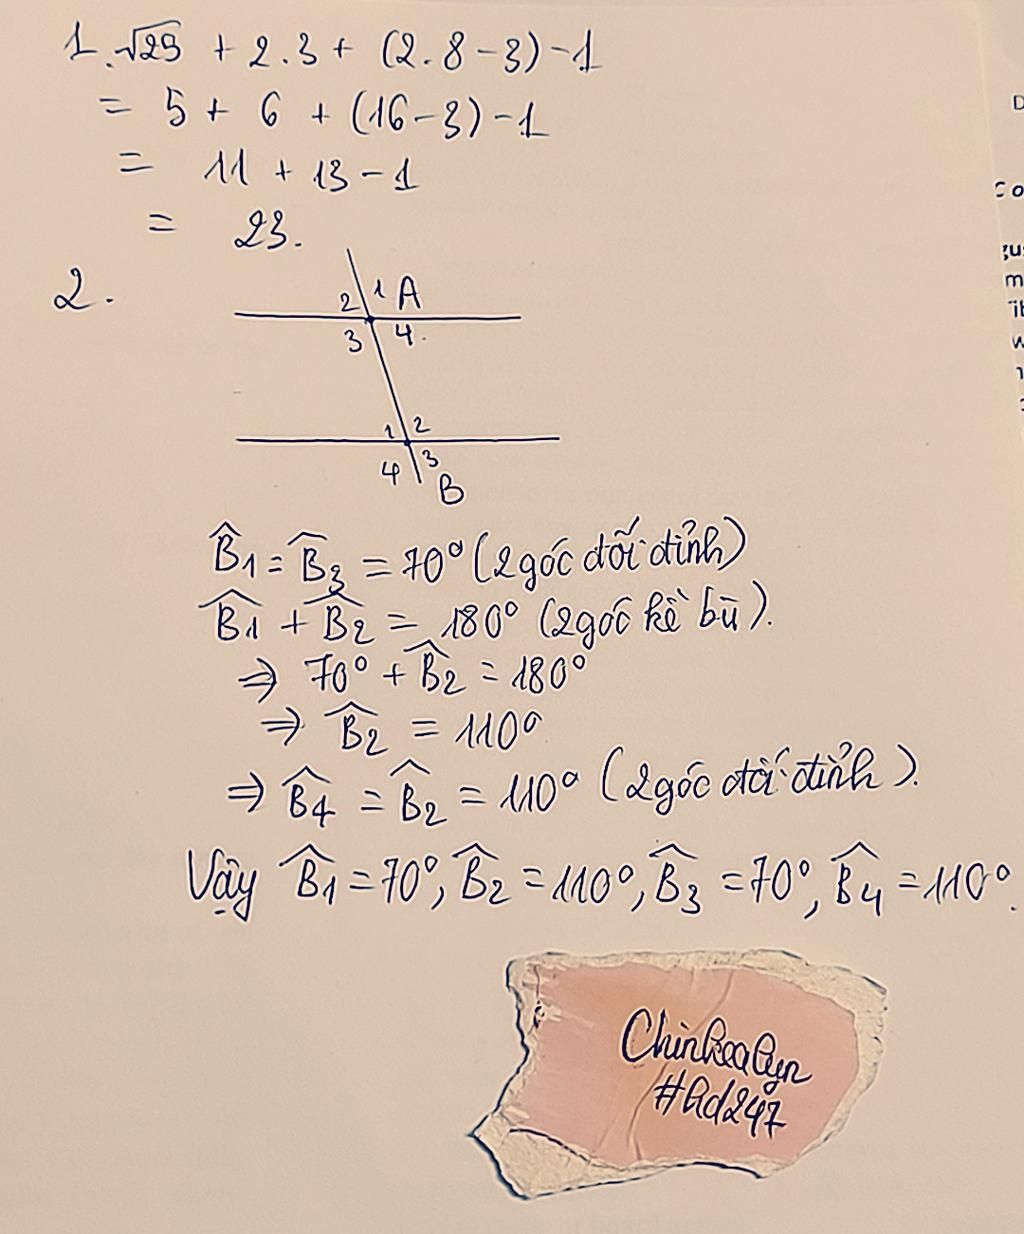 1. √25 + 2.3 + (2.8-3)-1
= 5 + 6 + (16-3)-1
= 11 + 13 - 1
= 23.
2.
2 1 A
3 4.
1 2
4 3
B
B̂1 = B̂3 = 70° (2 góc đối đỉnh)
B̂1 + B̂2 = 180° (2 góc kề bù).
⇒ 70° + B̂2 = 180°
⇒ B̂2 = 110°
⇒ B̂4 = B̂2 = 110° (2 góc đối đỉnh).
Vậy B̂1 = 70°, B̂2 = 110°, B̂3 = 70°, B̂4 = 110°.